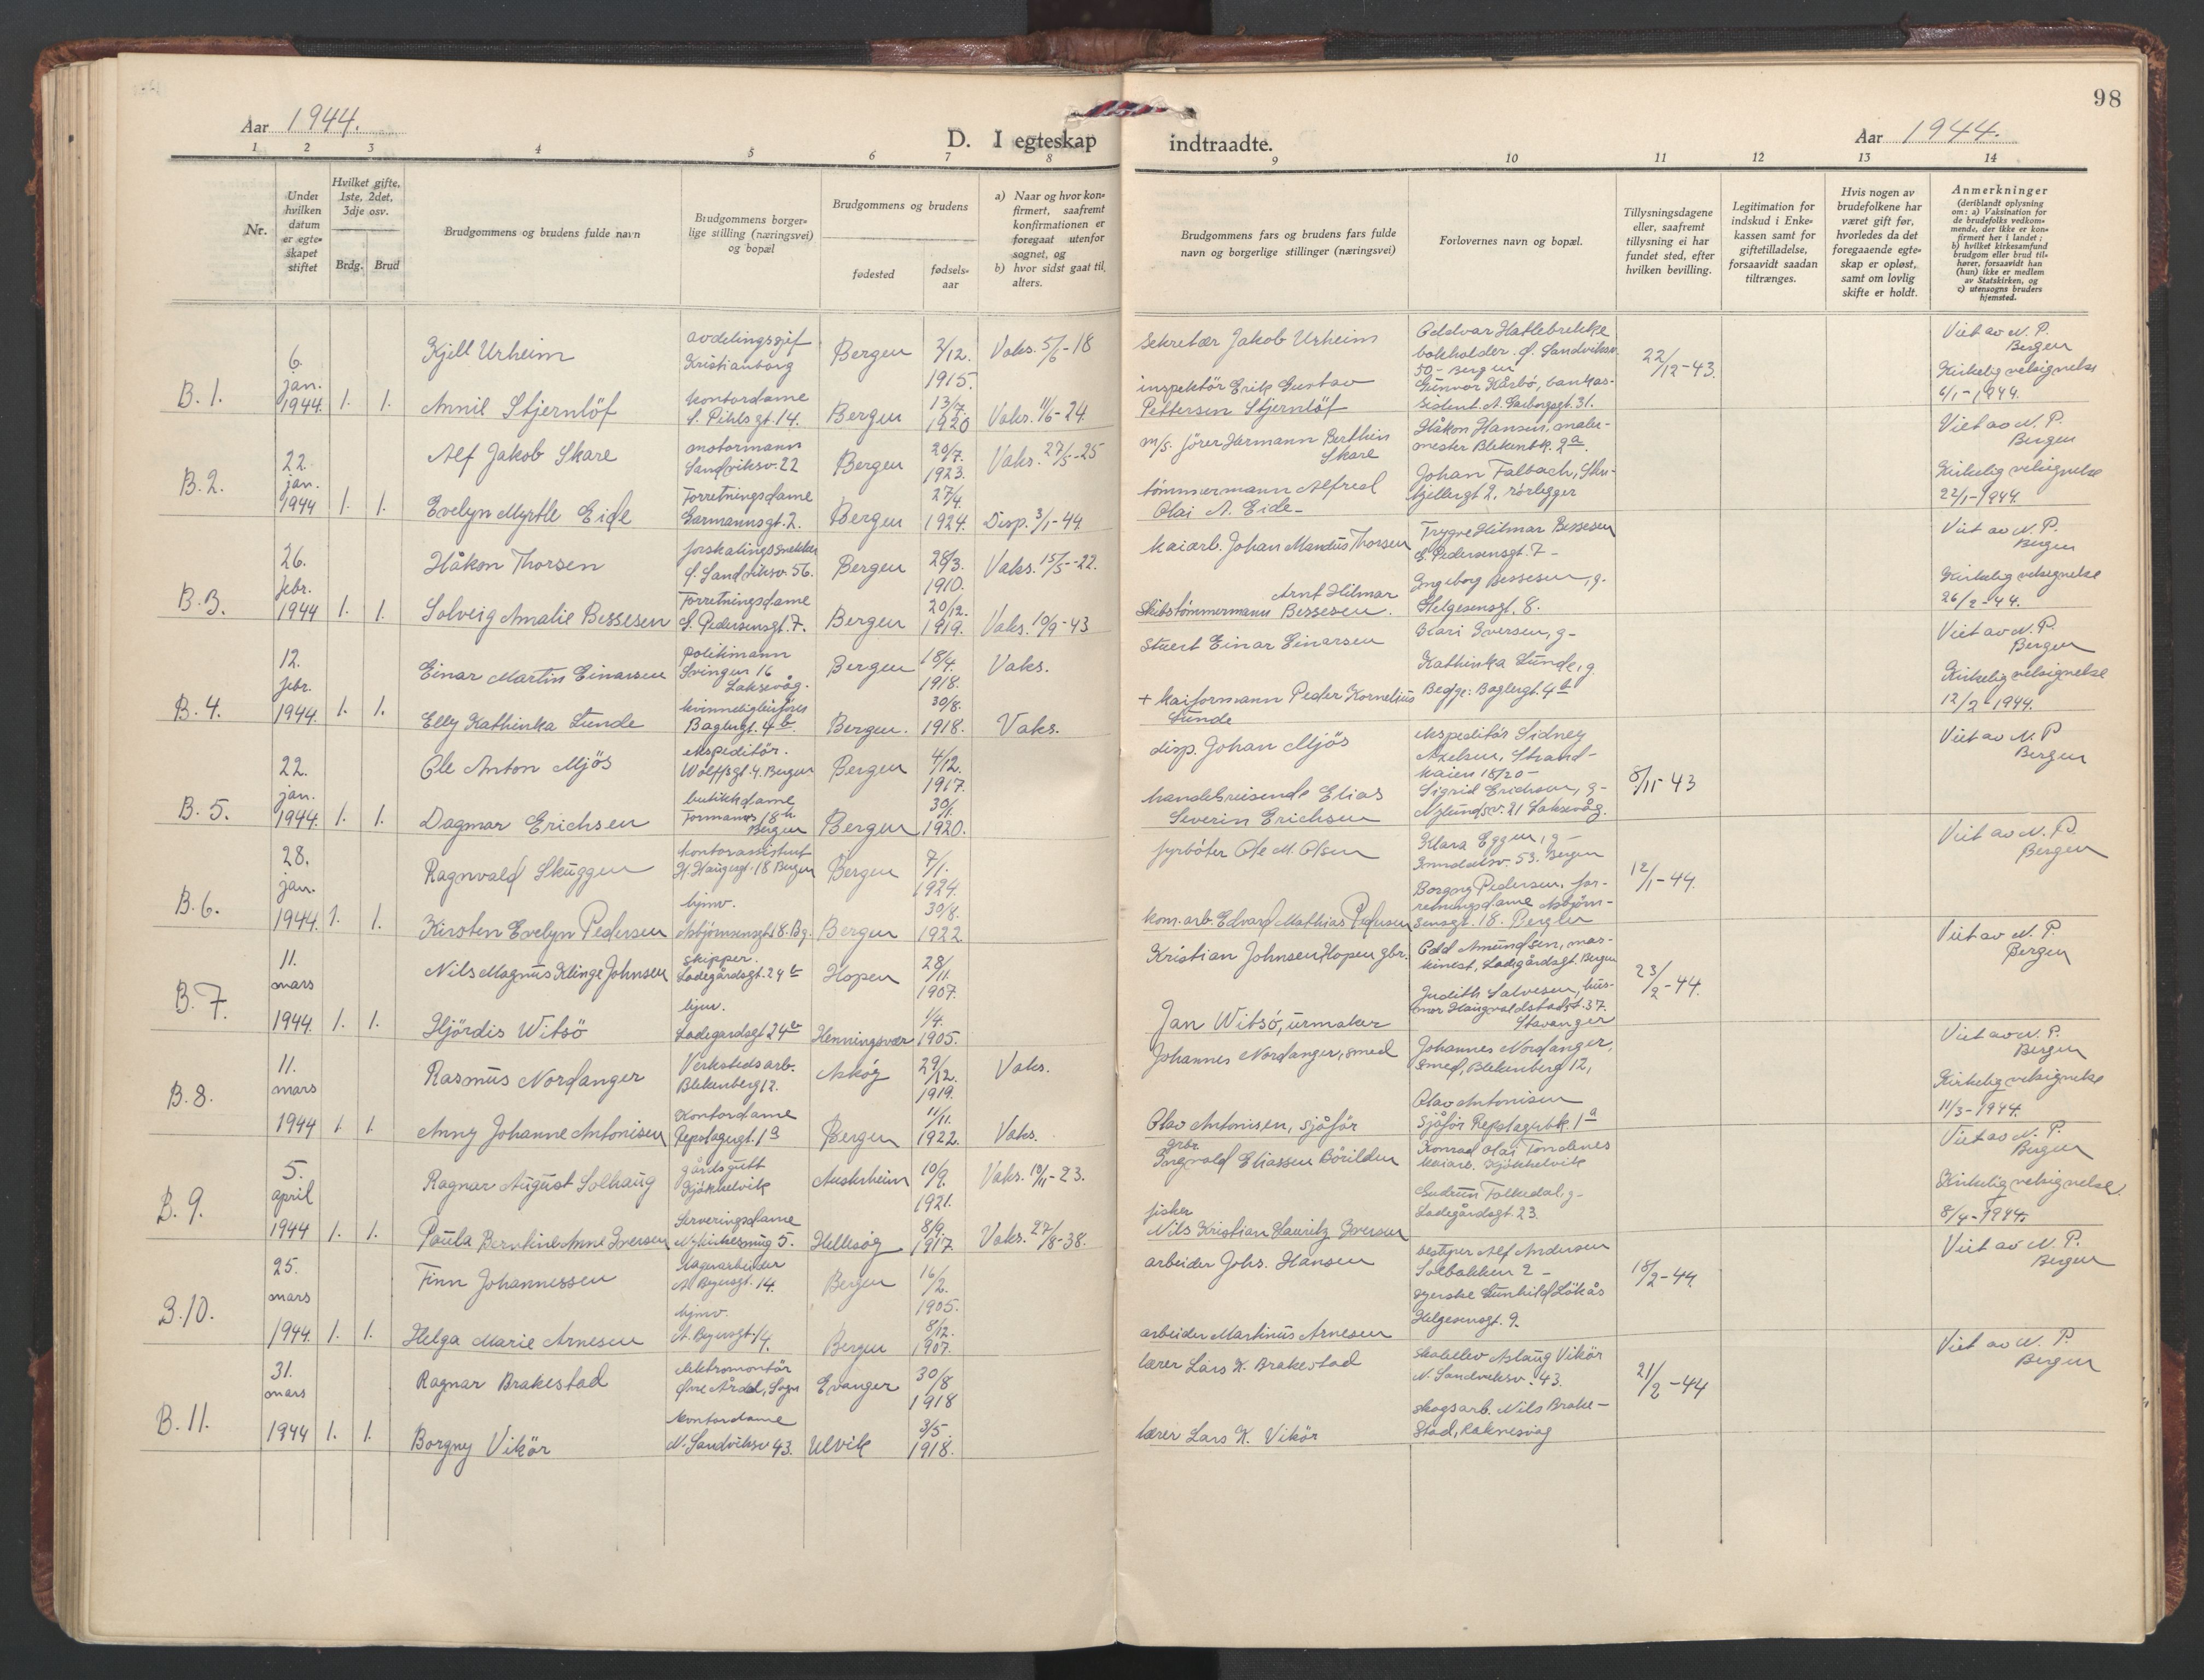 98
Aar 1944.
D. I egteskap indtraadte.
Aar 1944.
1 2 3 4 5 6 7 8 9 10 11 12 13 14
Nr.
Under hvilken datum er egteskapet stiftet
Hvilket gifte, 1ste, 2det, 3dje osv.
Brdg. Brud
Brudgommens og brudens fulde navn
Brudgommens borgerlige stilling (næringsvei) og bopæl
Brudgommens og brudens
fødested
fødselsaar
a) Naar og hvor konfirmert, saafremt konfirmationen er foregaat utenfor sognet, og
b) hvor sidst gaat til alters.
Brudgommens fars og brudens fars fulde navn og borgerlige stillinger (næringsvei)
Forlovernes navn og bopæl.
Tillysningsdagene eller, saafremt tillysning ei har fundet sted, efter hvilken bevilling.
Legitimation for indskud i Enkekassen samt for giftetilladelse, forsaavidt saadan tiltrænges.
Hvis nogen av brudefolkene har været gift før, hvorledes da det foregaaende egteskap er opløst, samt om lovlig skifte er holdt.
Anmerkninger
(deriblandt oplysning om: a) Vaksination for de brudefolks vedkommende, der ikke er konfirmert her i landet; b) hvilket kirkesamfund brudgom eller brud tilhører, forsaavidt han (hun) ikke er medlem av Statskirken, og c) utensogns bruders hjemsted.
B. 1. 6. jan. 1944. 1. 1.
Kjell Urheim avdelingssjef Kristianborg Bergen 2/12. 1915. Vaks. 5/6-18
Annil Stjernlöf kontordame S. Pihls gt. 14. Bergen 13/7. 1920 Vaks. 11/6-24
sekretær Jakob Urheim
inspektör Erik Gustav Pettersen Stjernlöf
Oddvar Hatlebrekke bokholder. Ö. Sandviksv. 50 - Bergen
Gunvor Kårbö, bankassident. A. Garborgsgt. 31.
22/12-43.
Viet av N. P. Bergen
Kirkelig velsignelse 6/1-1944.
B. 2. 22. jan. 1944 1. 1.
Alf Jakob Skare motormann Sandviksv. 22 Bergen 20/7. 1923. Vaks. 27/5-25
Evelyn Myrtle Eide Forretningsdame Garmannsgt. 2. Bergen 27/4. 1924. Disp. 3/1-44.
m/s. förer Hermann Berthin Skare
tömmermann Alfred Olai A. Eide -
Håkon Hansen, malermester Blekenbk. 9a.
Johan Falbach, Skutvjellergt 2, rörlegger
Viet av N. P. Bergen
Kirkelig velsignelse 22/1-1944.
B. 3. 26. febr. 1944 1. 1.
Håkon Thorsen forskalingssnekker Ö. Sandviksv. 56. Bergen 28/3. 1910. Vaks. 15/5-22.
Solveig Amalie Bessesen Forretningsdame S. Pedersensgt. 7. Bergen 20/12. 1919. Vaks. 10/9-43
kaiarb. Johan Mandus Thorsen
Skibstömmermann Arnt Hilmar Bessesen.
Trygve Hilmar Bessesen S. Pedersensgt. 7 -
Ingeborg Bessesen, g. Helgesensgt. 8.
Viet av N. P. Bergen
Kirkelig velsignelse 26/2-44.
B. 4. 12. febr. 1944. 1. 1.
Einar Martin Einarsen politimann Svingen 16 Laksevåg. Bergen 18/4. 1918. Vaks.
Elly Kathinka Lunde Baglergt. 4b. Bergen. 30/8. 1918. Vaks.
Stuert Einar Einarsen
+ kaiformann Peder Kornelius Lunde
Kari Iversen, g-
Kathinka Lunde, g. Begge: Baglergt. 4b
Viet av N. P. Bergen
Kirkelig velsignelse 12/2-1944.
B. 5. 22. jan. 1944. 1. 1.
Ole Anton Mjös ekspeditör. Wolffsgt. 4. Bergen Bergen 4/12. 1917.
Dagmar Erichsen butikkdame Formannsv. 18b Bergen Bergen 30/1. 1920.
disp. Johan Mjös
handelsreisende Elias Severin Erichsen
ekspeditör Sidney Axelsen, Strandkaien 18/20 -
Sigrid Erichsen, g- Nylundsv. 21 Laksevåg.
8/11-43
Viet av N. P. Bergen
B. 6. 28. jan. 1944. 1. 1.
Ragnvald Skuggen kontorassistent H. Haugesgt. 18 Bergen Bergen 7/1. 1924.
Kirsten Evelyn Pedersen hjmv. Asbjörnsensgt 18. Bg. Bergen 30/8. 1922.
fyrböter Ole M. Olsen
kom. arb. Edvard Mathias Pedersen
Klara Eggen, g- 53. Bergen
Borgny Pedersen, forretningsdame Asbjörnsensgt. 18. Bergen
12/1-44.
Viet av N. P. Bergen
B. 7. 11. mars 1944. 1. 1.
Nils Magnus Klinge Johnsen skipper. Ladegårdsgt. 24b Hopen 28/11. 1907.
Hjördis Witsö hjmv. Ladegårdsgt 24b Henningsvær 1/4. 1905.
Kristian Johnsen Hopen gbr.
Jan Witsö, urmaker
Odd Amundsen, maskinist, Ladegårdsgt. Bergen
Judith Salvesen, husmor Haugvaldstadst. 37. Stavanger
23/2-44.
Viet av N. P. Bergen
B. 8. 11. mars 1944 1. 1.
Rasmus Nordanger Verkstedsarb. Blekenberg 12. Askög 29/12. 1919. Vaks.
Anny Johanne Antonisen Kontordame Repslagergt. 1a Bergen 11/11. 1922. Vaks.
Johannes Nordanger, smed
Olav Antonisen, sjåför
Johannes Nordanger, smed, Blekenberg 12,
Olav Antonisen sjåför Repslagerbk. 1a
Viet av N. P. Bergen
Kirkelig velsignelse 11/3-1944.
B. 9. 5. april 1944 1. 1.
Ragnar August Solhaug gårdsgutt Kjökkelvik Austrheim 10/9. 1921. Vaks. 10/11-23.
Paula Berntine Anne Iversen Serveringsdame Nykirkesmug 5. Hellesög 8/9. 1917. Vaks. 27/8-38.
gbr. Ingvald Eliassen Börilden
fisker Nils Kristian Lauritz Iversen
Konrad Olai Tondenes kaiarb. Kjökkelvik
Gudrun Folkedal, g- Ladegårdsgt. 23.
Viet av N. P. Bergen
Kirkelig velsignelse. 8/4-1944.
B. 10. 25. mars 1944. 1. 1.
Finn Johannessen lagerarbeider A. Beyersgt. 14. Bergen 16/2. 1905.
Helga Marie Arnesen hjmv. A. Beyersgt. 14. Bergen 8/12. 1907.
arbeider Johs. Hansen
arbeider Martinus Arnesen
bestyrer Alf Andersen Solbakken 2 -
syerske Gunhild Lökås Helgesensgt. 9.
18/2-44.
Viet av N. P. Bergen
B. 11. 31. mars 1944 1. 1.
Ragnar Brakestad elektromontör Övre Årdal, Sogn Evanger 30/8 1918
Borgny Vikör kontordame N. Sandviksv 43. Ulvik 3/5. 1918.
lærer Lars K. Brakestad
lærer Lars K. Vikör
skoleelev Aslaug Vikör N. Sandviksv. 43.
skogsarb. Nils Brakestad, Raknesvåg
21/2-44
Viet av N. P. Bergen